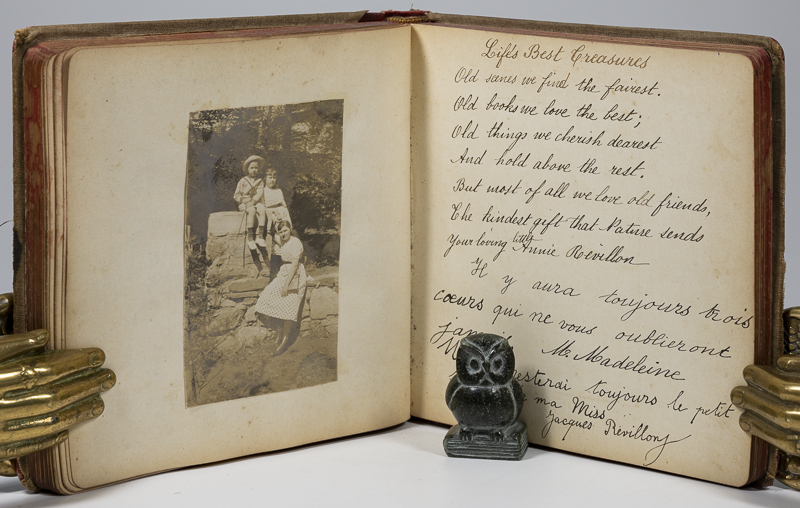 Life's Best Treasures
Old scenes we find the fairest.
Old books we love the best;
Old things we cherish dearest
And hold above the rest.
But most of all we love old friends,
The kindest gift that Nature sends
Your loving little Annie Révillon
Il y aura toujours trois
cœurs qui ne vous oublieront
jamais Me Madeleine
resterai toujours le petit
ma Miss
Jacques Révillon